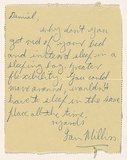 Daniel,
why don't you
get rid of your bed
and instead sleep in a
sleeping bag, greater
flexibility. You could
move around, wouldn't
have to sleep in the same
place all the time,
regards
Ian Wilson